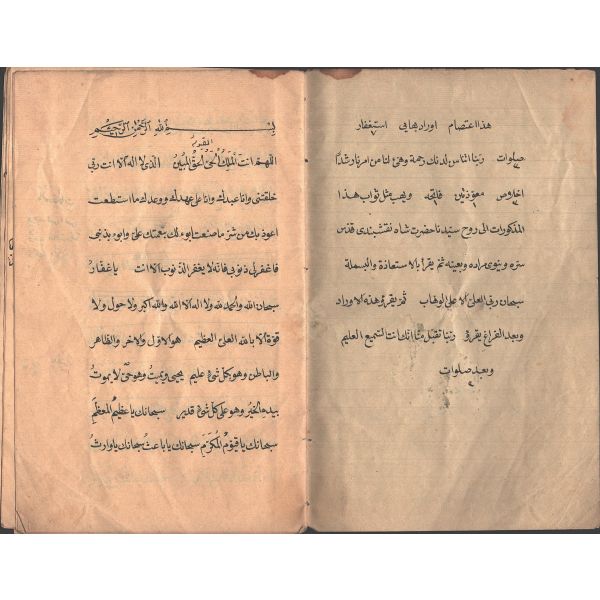 هذا اعتصام اوراد بهايى استغفار
صلوات ربنا اتنا من لدنك رحمة وهئ لنا من امرنا رشدا
اخلاص معوذتين فاتحه ويهب مثل ثواب هذا
المذكورات الى روح سيدنا حضرت شاه نقشبندى قدس
سره وينوى مراده وبعينه ثم يقرأ بالاستعاذة والبسملة
سبحان ربى العلى الاعلى الوهاب ثم يقرؤ هذه الاوراد
وبعد الفراغ يقرؤ ربنا تقبل منا انك انت السميع العليم
وبعد صلوات
بسم الله الرحمن الرحيم
اللهم انت الملك الحى القدوم الحق المبين الذى لا اله الا انت ربى
خلقتنى وانا عبدك وانا على عهدك ووعدك ما استطعت
اعوذ بك من شر ما صنعت ابوء لك بنعمتك على وابوء بذنبى
فاغفر لى ذنوبى فانه لا يغفر الذنوب الا انت يا غفار
سبحان الله والحمد لله ولا اله الا الله والله اكبر ولا حول ولا
قوة الا بالله العلى العظيم هو الاول والاخر والظاهر
والباطن وهو بكل شئ عليم يحيى ويميت وهو حى لا يموت
بيده الخير وهو على كل شئ قدير سبحانك يا عظيم المعظم
سبحانك يا قيوم المكرم سبحانك يا باعث سبحانك يا وارث